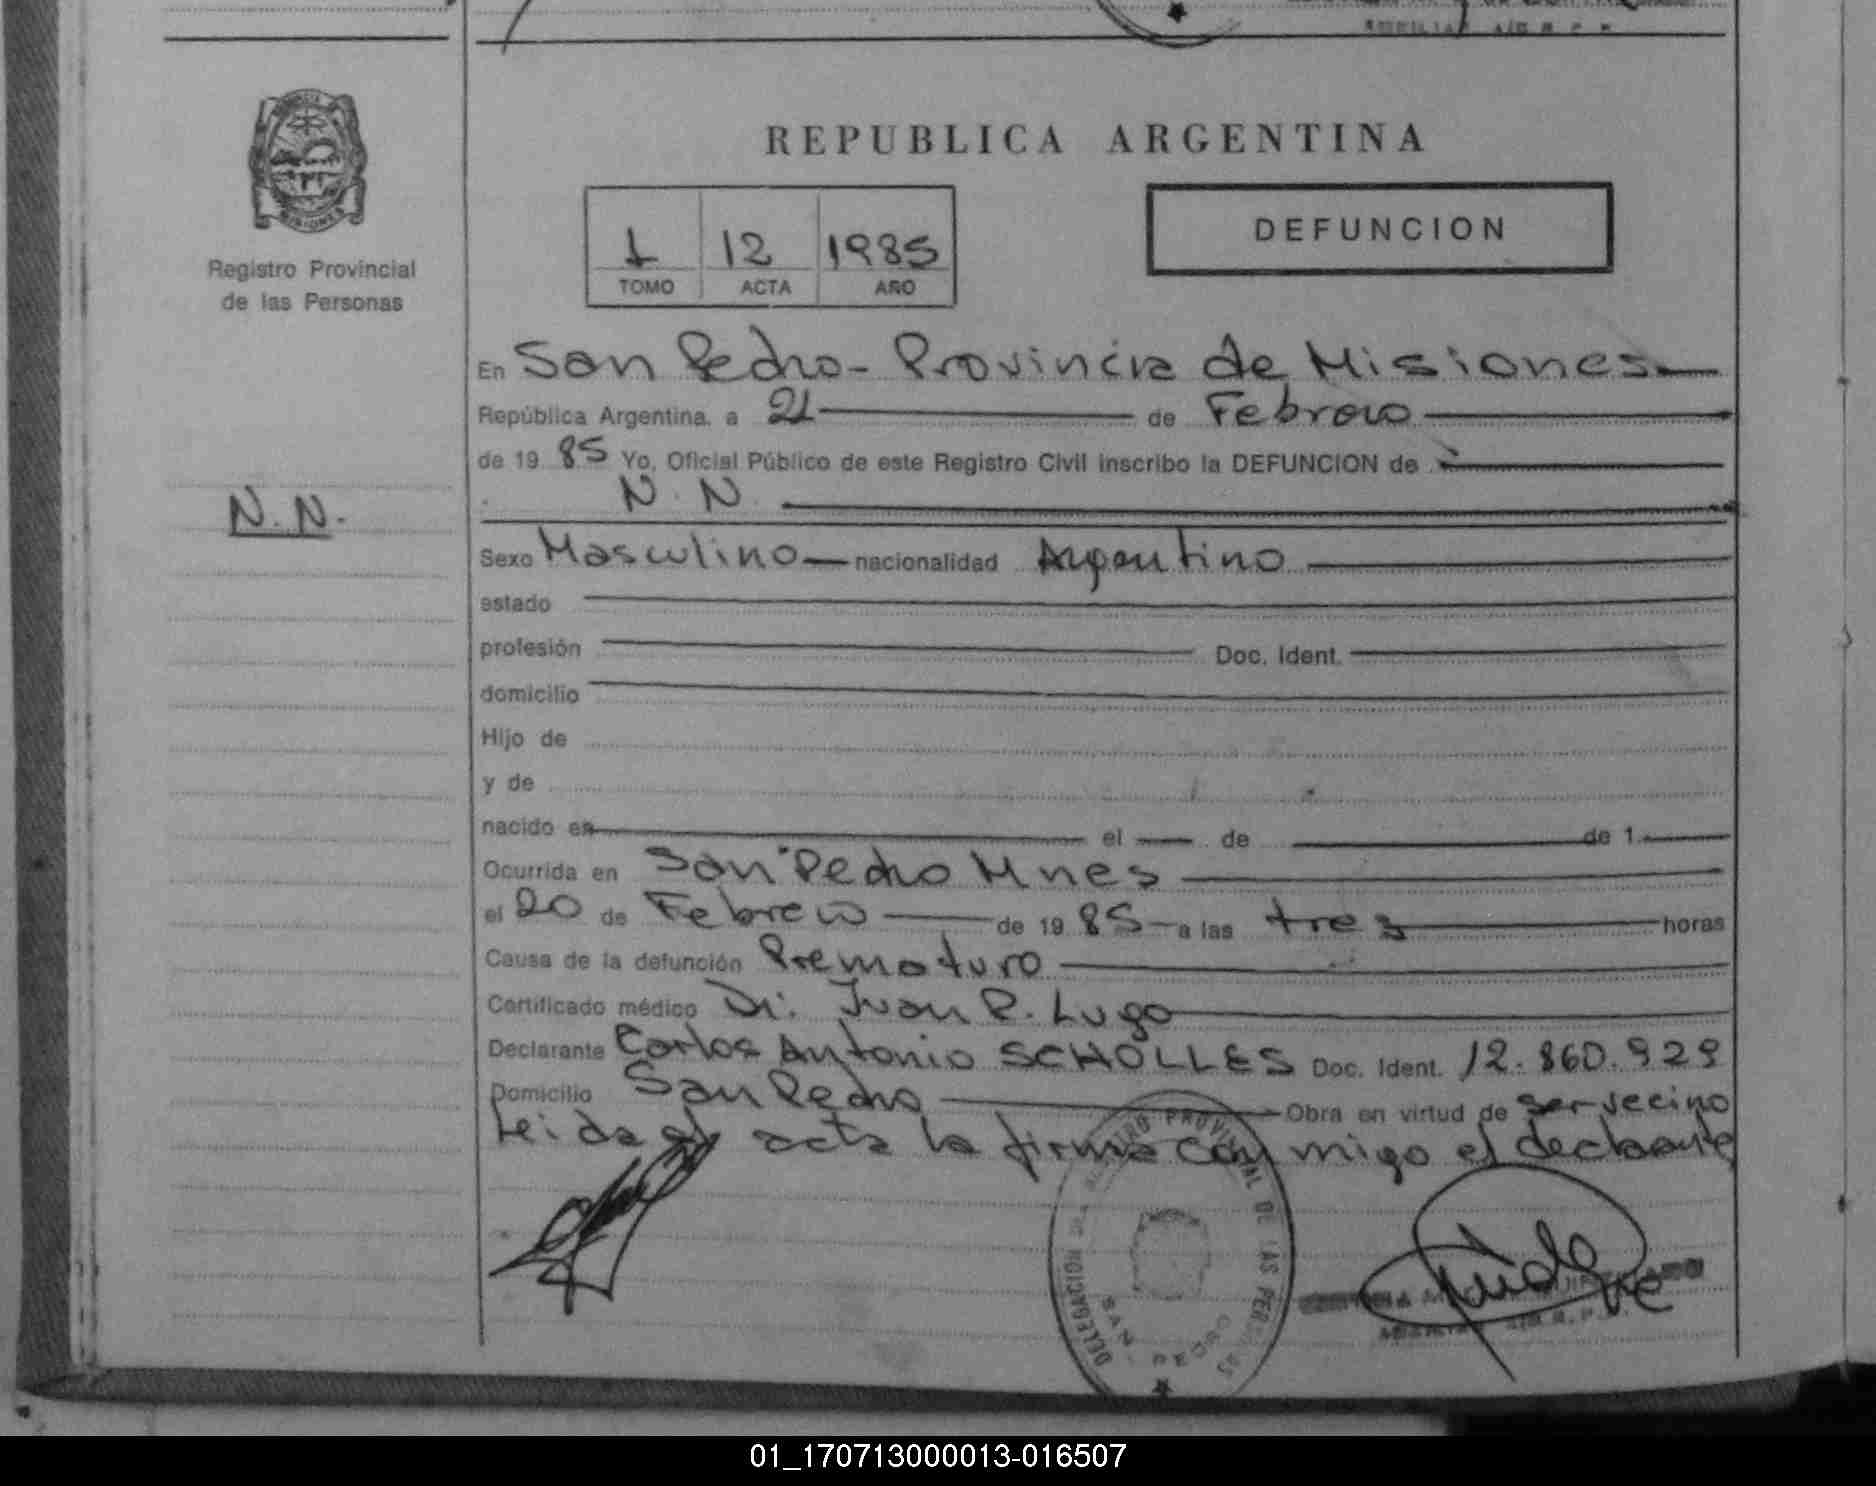 REPUBLICA ARGENTINA
1 12 1985
TOMO ACTA AÑO
DEFUNCION
Registro Provincial
de las Personas
N.N.
En San Pedro - Provincia de Misiones
República Argentina, a 21 de Febrero
de 19 85 Yo, Oficial Público de este Registro Civil inscribo la DEFUNCION de
N. N.
Sexo Masculino nacionalidad Argentino
estado
profesión Doc. Ident.
domicilio
Hijo de
y de
nacido en el de de 1
Ocurrida en San Pedro Mnes
el 20 de Febrero de 19 85 a las tres horas
Causa de la defunción Prematuro
Certificado médico Dr. Juan R. Lugo
Declarante Carlos Antonio SCHOLLES Doc. Ident. 12.860.929
Domicilio San Pedro Obra en virtud de ser vecino
Leida el acta la firma con migo el declarante
DELEGACION DEL REGISTRO PROVINCIAL DE LAS PERSONAS
SAN PEDRO
01_170713000013-016507